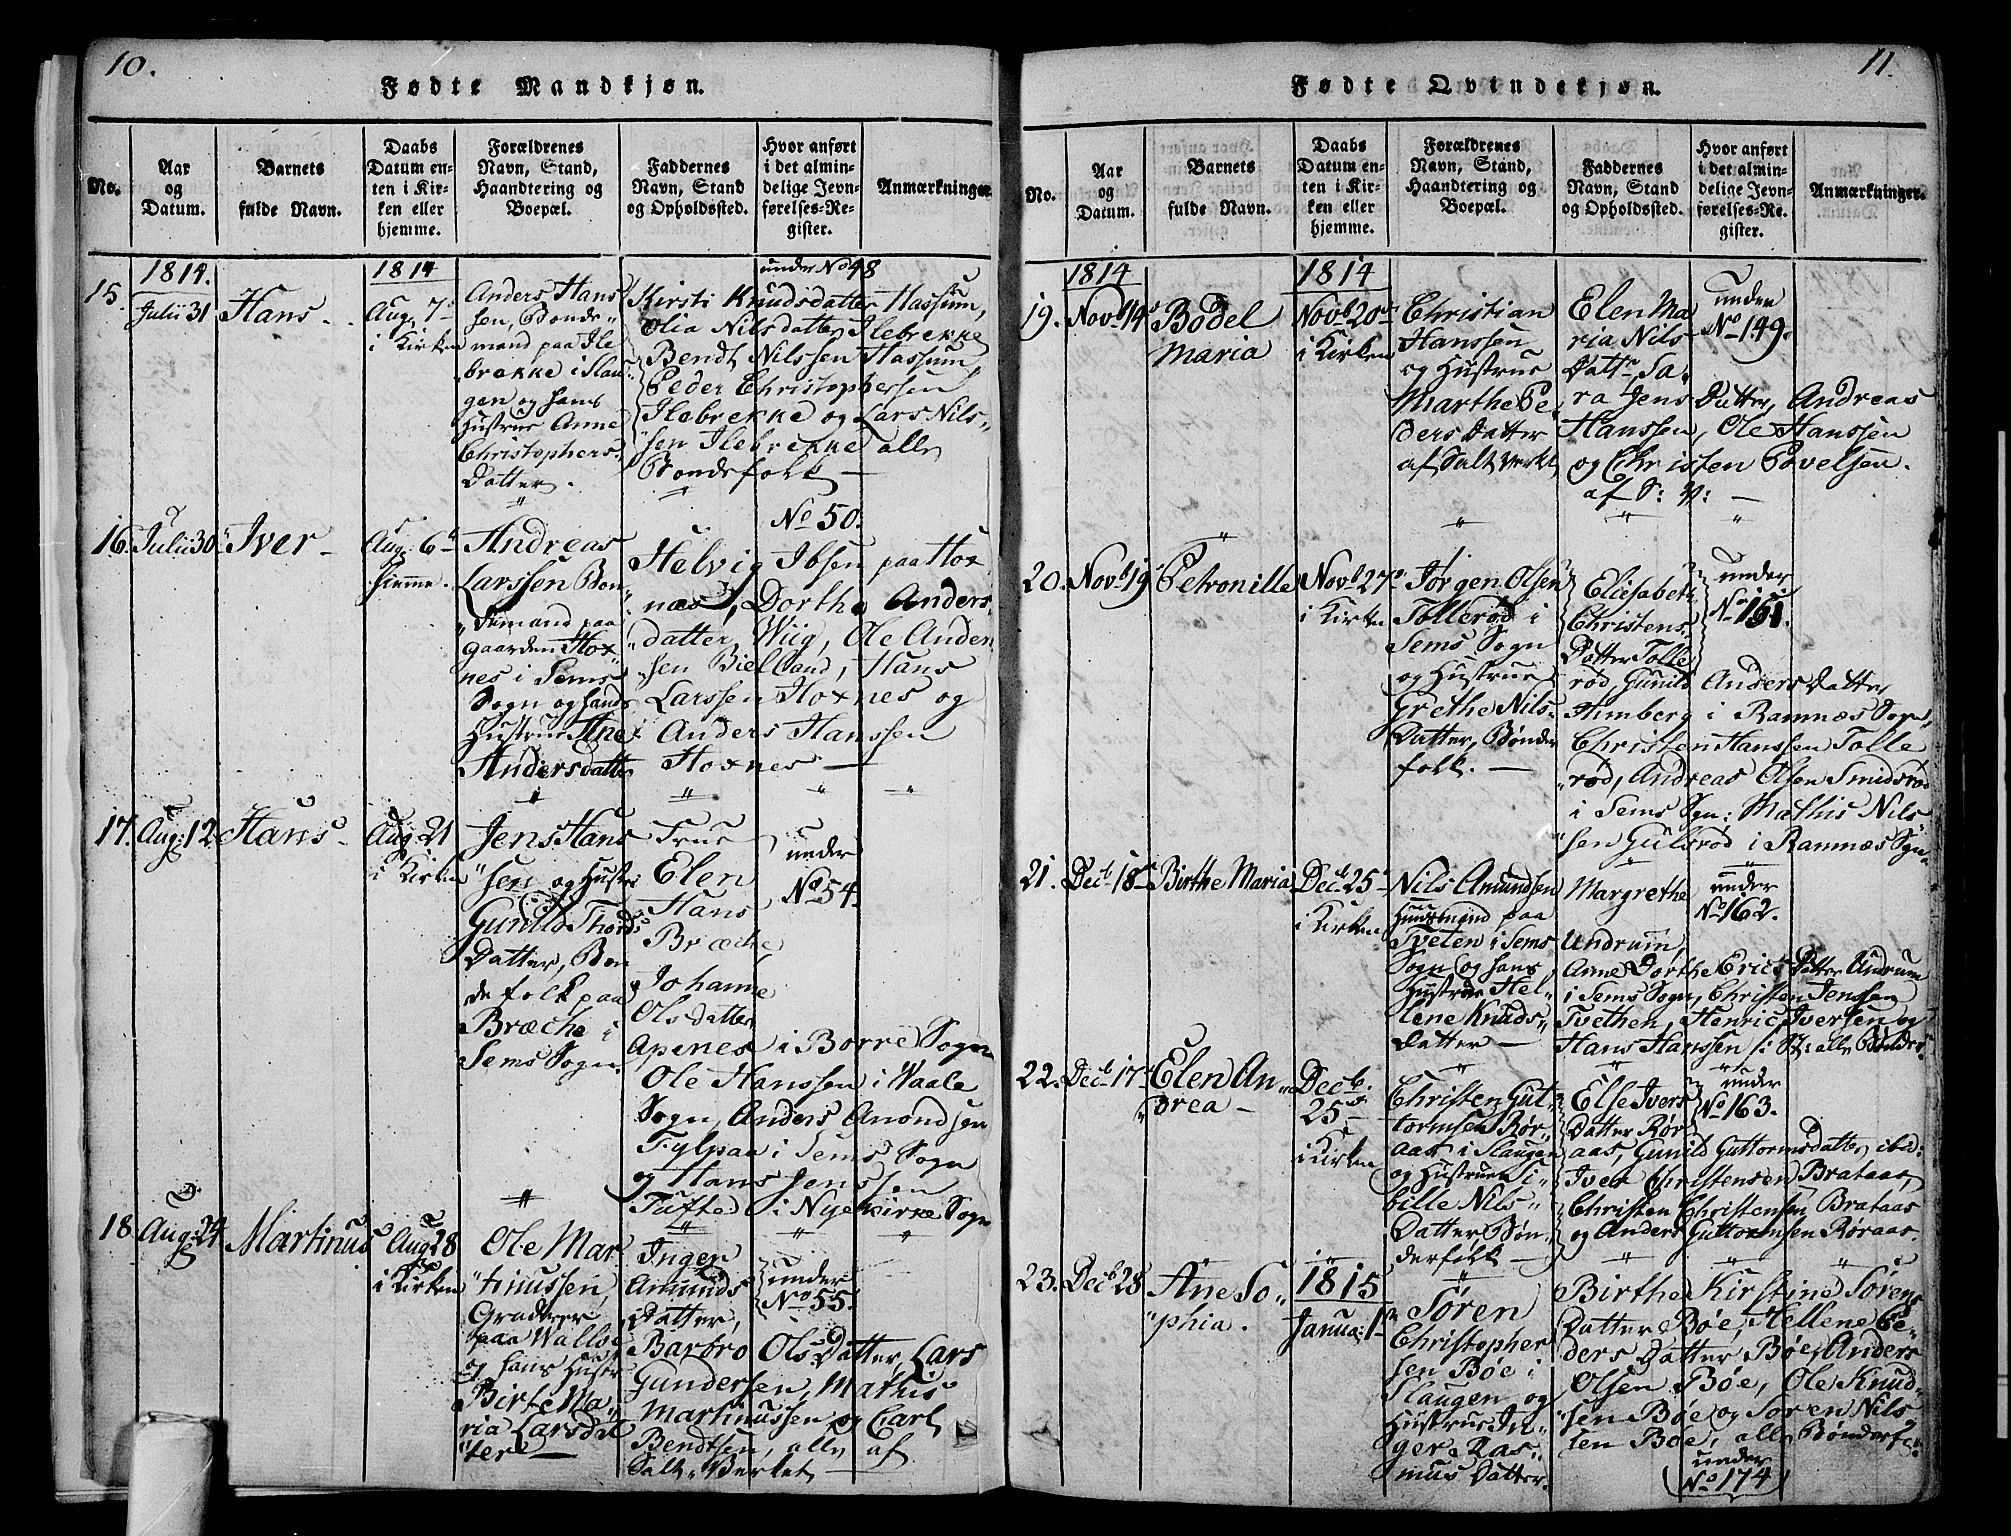 10.
Fødte Mandkjøn.
No.
Aar
og
Datum.
Barnets
fulde Navn.
Daabs
Datum en-
ten i Kir-
ken eller
hjemme.
Forældrenes
Navn, Stand,
Haandtering og
Boepæl.
Faddernes
Navn, Stand
og Opholdssted.
Hvor anført
i det almin-
delige Jevn-
førelses-Re-
gister.
Anmærkninger.
15.
1814.
Julii 31
Hans
1814
Aug. 7
i Kirken
Anders Hans
sen, Bonde-
mand paa Ile
brekke i Slau
gen og hans
Hustrue Anne
Christophers
Datter.
under No 48
Kirsti Knudsdatter Hassum,
Olia Nilsdatter Ilebrekke
Bendt Nilssen Hassum
Peder Christophersen
Ilebrekke og Lars Nils-
sen Ilebrekke alle
Bondefolk —
16.
Julii 30
Iver —
Aug. 6
hiemme.
Andreas
Larssen Bon-
demand paa
gaarden Hox-
nes i Sems
Sogn og hans
Hustrue Ane
Andersdatter
No 50.
Helvig Ibsen paa Hox
næs, Dorthe Anders-
datter Wiig, Ole Ander
sen Bielland, Hans
Larssen Hoxnes og
Anders Hanssen
Hoxnes —
17.
Aug: 12
Hans
Aug. 21
i Kirken
Jens Hans
sen og Hustr:
Gunild Thords
Datter, Bon
de folk paa
Bræche i
Sems Sogn.
Frue
Elen
Hans
Bræche
Johanne
Olsdatter
Apenes i Borre Sogn
Ole Hanssen i Waale
Sogn, Anders Amondsen
Fylpaa i Sems Sogn
og Hans Jenssen
Tufte i Nyekirke Sogn
under
No 54.
18.
Aug: 24
Martinus
Aug 28
i Kirken
Ole Mar
tinussen,
Graderer
paa Walløe
og hans Hustr
Birte Ma-
ria Larsdat
ter —
Inger
Amunds
Datter,
Barbro Ols Datter, Lars
Gundersen, Mathis
Martinussen og Carl
Bendtsen, alle af
Salt-Verket —
under
No 55.
11.
Fødte Qvindekjøn.
No.
Aar
og
Datum.
Barnets
fulde Navn.
Daabs
Datum en-
ten i Kir-
ken eller
hjemme.
Forældrenes
Navn, Stand,
Haandtering og
Boepæl.
Faddernes
Navn, Stand
og Opholdssted.
Hvor anført
i det almin-
delige Jevn-
førelses-Re-
gister.
Anmærkninger.
19.
1814
Novb 14
Bodel
Maria
1814
Novb 20
i Kirken
Christian
Hanssen
og Hustrue
Marthe Pe-
ders Datter
af Salt Verket
Elen Ma
ria Nils
Dattr, Sa-
ra Jens Datter, Andreas
Hanssen, Ole Hanssen
og Christen Povelsen.
af S: V: —
under
No 149.
20.
Novb 19
Petronille
Novb 27
i Kirken
Jørgen Olsen
Tollerød i
Sems Sogn
og Hustrue
Grethe Nils-
Datter, Bønder
folk. —
Elisabeth
Christens
Datter Tolle
rød, Gunild Anders Datter
Himberg i Ramnæs Sogn,
Christen Hanssen Tolle
rød, Andreas Olsen Smidsrød
i Sems Sogn: Mathis Nils
sen Gulsrød i Ramnæs Sogn
under
No 151.
21.
Decb 18
Birthe Maria
Decb 25
i Kirken
Nils Amundsen
Huusmand paa
Tveten i Sems
Sogn og hans
Hustrue Hel-
lene Knuds-
Datter —
Margrethe
Undrum,
Anne Dorthe Erics Datter Undrum
i Sems Sogn, Christen Jenssen
Tvethen, Henric Iversen og
Hans Hanssen i St: alle Bønder
under
No 162.
22.
Decb 17
Elen An-
drea —
Decb.
25
i Kirken
Christen Gut-
tormsen Rør-
aas i Slaugen
og Hustrue Si-
bille Nils-
Datter Bøn-
derfolk —
Else Ivers
Datter Rør-
aas, Gunild Guttormsdatter ibid:
Iver Christensen Brataas,
Christen Christensen Brataas
og Anders Guttormsen Røraas.
under
No 163.
23.
Decb 28
Ane So-
phia.
1815
Janua: 1
Søren
Christopher
sen Bøe i
Slaugen og
Hustrue In-
ger Ras-
mus Datter.
Birthe Kirstine Sørens
Datter Bøe, Hellene Pe-
ders Datter Bøe, Anders
Olsen Bøe, Ole Knud-
sen Bøe og Søren Nils
sen Bøe, alle Bønderf:
under
No 174